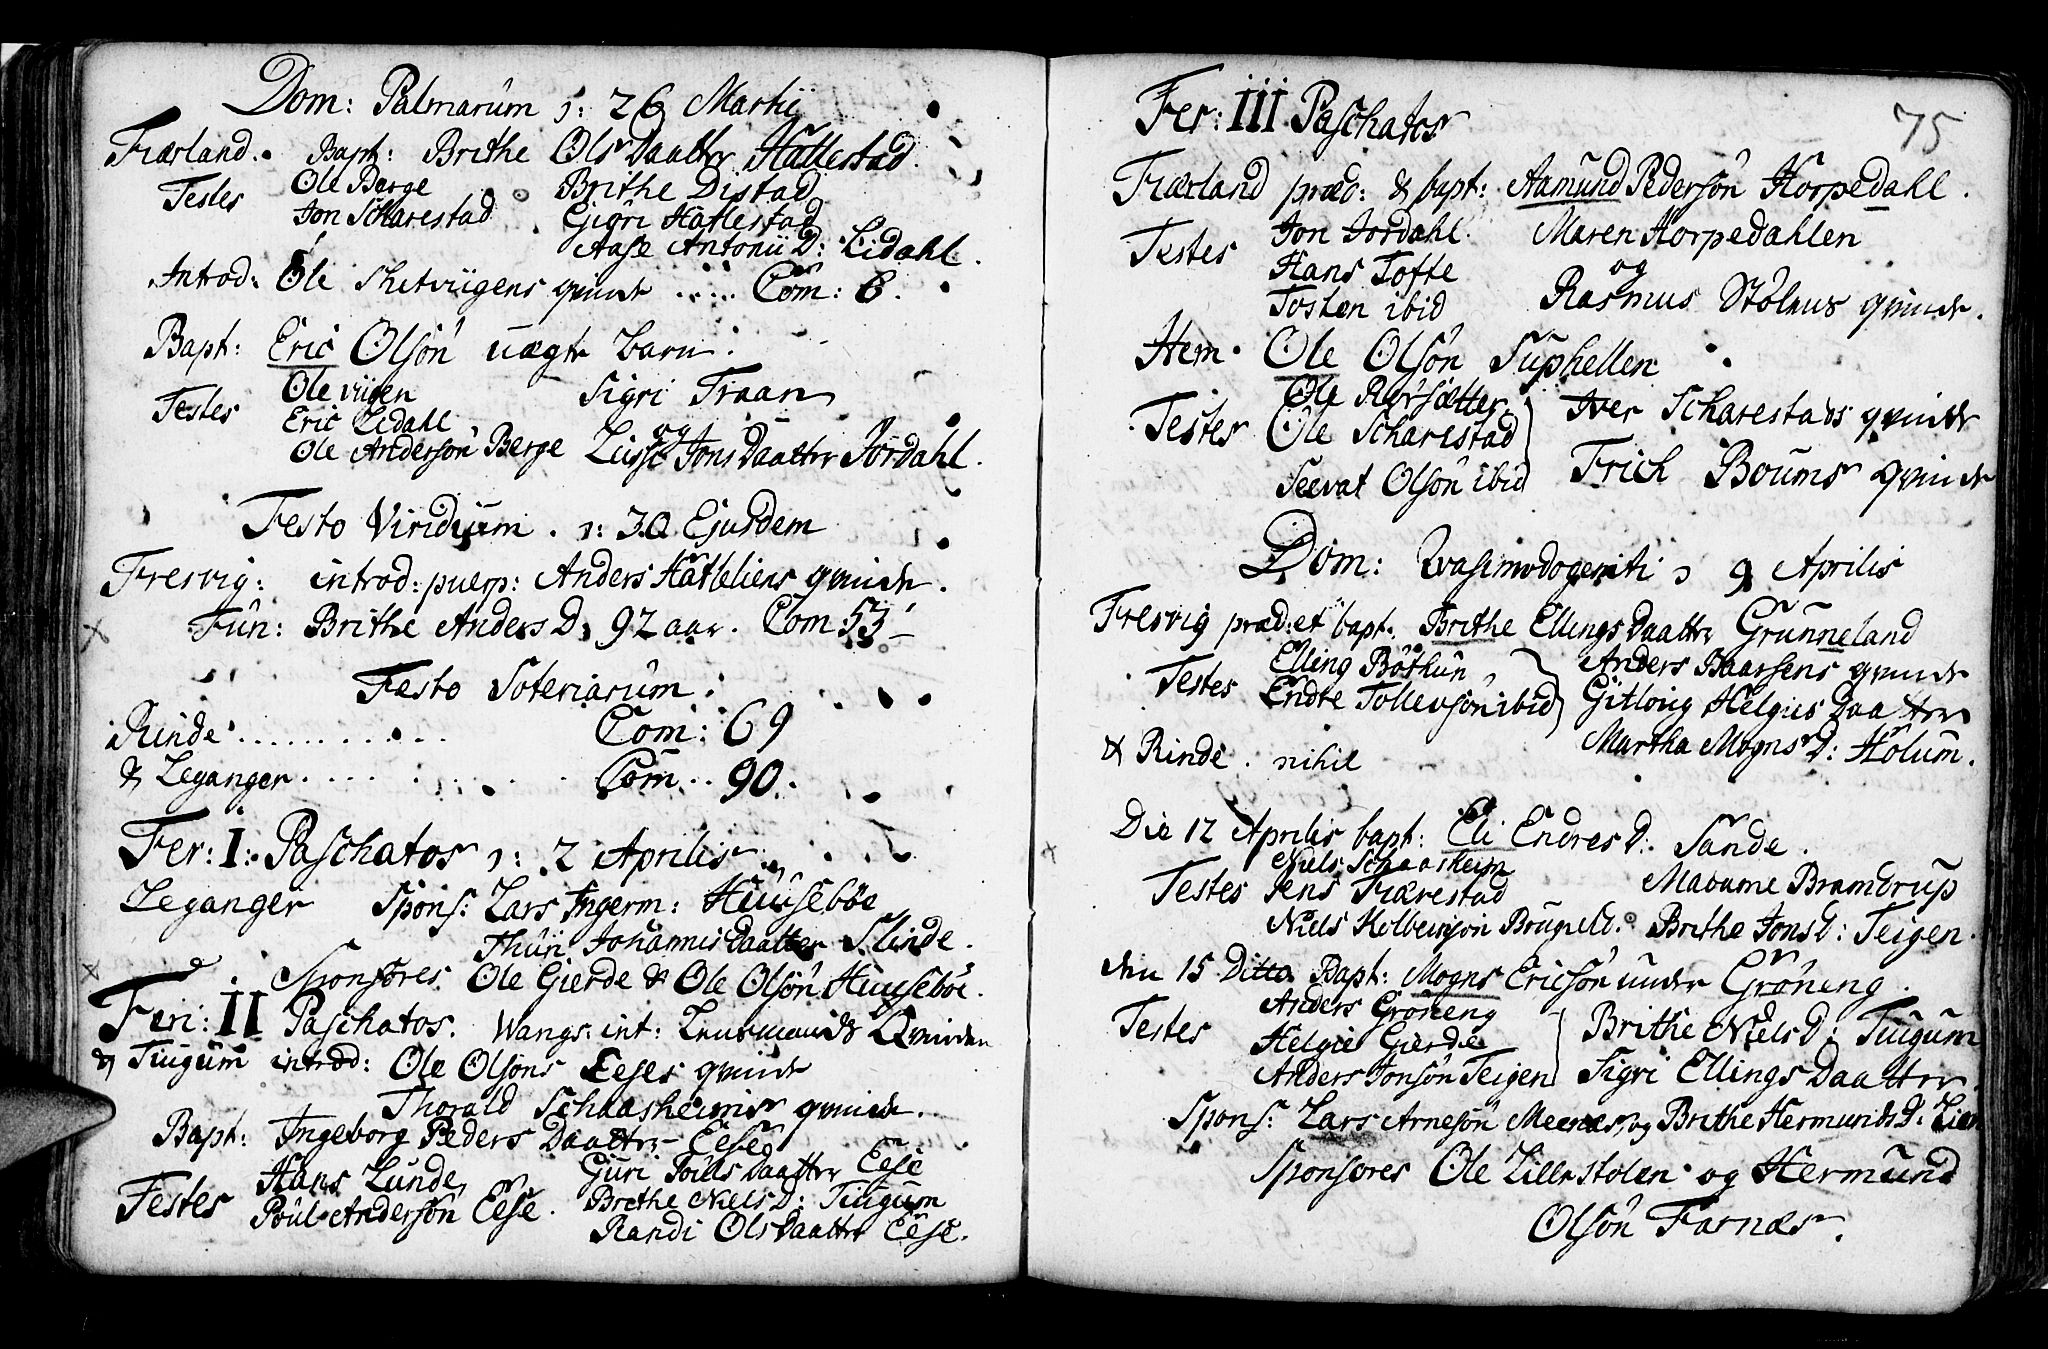 Dom: Palmarum d: 26 Martii
Fiærland. Bapt: Brithe Ols Daatter Hatlestad.
Testes Ole Berge Brithe Distad
Jon Scharestad. Gigri Hatlestad
Aase Antonii D: Eidahl.
Introd: Ole Skitviigens qvinde ..... Com: 6.
Bapt: Eric Olsøn uægte barn.
Testes Ole viigen Sigri Traan
Eric Eidahl og
Ole Andersøn Berge Lisse Jons Daatter Jordahl.
Festo Viridium. d: 30 Ejusdem
Fresvig: introd: puerp: Anders Hatleliens qvinde.
Fun: Brithe Anders D. 92 aar. Com 53
Festo Soteriarum.
Rinde .......... Com: 69
& Leganger .......... Com.. 90.
Fer: I: Paschatos d: 2 Aprilis
Leganger Spons: Lars Ingerm: Huusebøe
Thuri Johannis Daatter Slinde.
Sponsores. Ole Gierde & Ole Olsøn Huusebøe.
Feri: II Paschatos. Wangs: int: Qvinden
& Tiugum introd: Ole Olsøns Eeses qvinde
Thorald Schaasheims qvinde.
Bapt: Ingeborg Peders Daatter Eese
Testes Hans Lunde, Guri Poüls Daatter Eese
Poül Andersøn Eese. Brethe Niels D: Tiugum
Randi Ols Daatter Eese.
75
Fer: III Paschatos
Fiærland præd: & bapt: Aamund Pedersøn Horpedahl.
Testes Jon Jordahl. Maren Horpedahlen
Hans Tofte og
Tosten ibid Rasmus Stølens qvinde.
Hem. Ole Olsøn Suphellen
Ole Rørsætter
Testes Ole Scharestad Iver Scharestads qvinde
Seevat Olsøn ibid Frich Boums qvinde
Dom: Qvasimodogeniti d 9 Aprilis
Fresvig præd: et bapt: Brithe Ellings Daatter Grunneland
Testes Elling Bøthun, Anders Baarsens qvinde
Endre Tollevsøn ibid Gitloug Helgies Daatter
Martha Mogns D: Hølum.
& Rinde. nihil
Die 12 Aprilis bapt: Eli Endres D: Sande.
Niels Schaasheim
Testes Jens Fiærestad Madame Bramdrup
Niels Brithe Jons D: Teigen.
den 15 Ditto Bapt: Mogns Ericsøn under Grøneng.
Testes Anders Grøneng Brithe Niels D: Tiugum
Helgie Gierde
Anders Jonsøn Teigen Sigri Ellings Daatter
Spons: Lars Arnesøn Meenæs, og Brithe Hermunds D: Lien
Sponsores Ole Lillestolen og Hermund
Olsøn Farnæs.